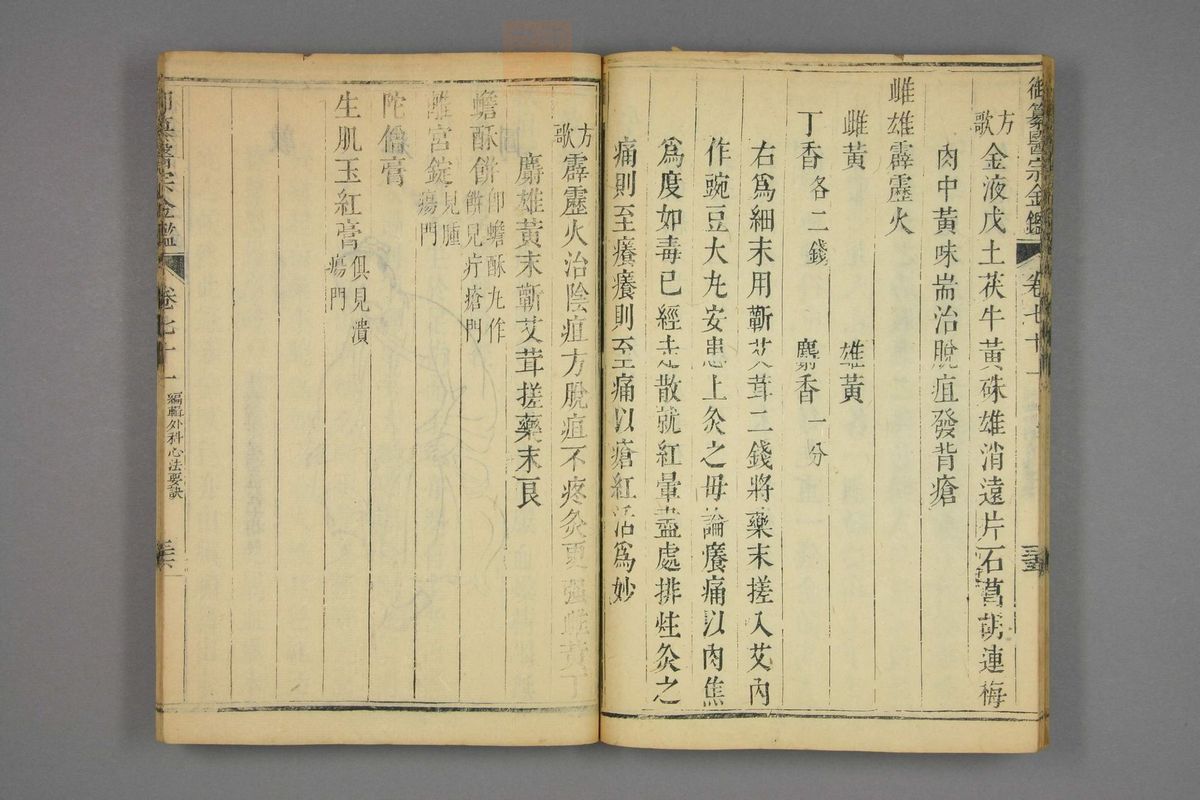 御纂醫宗金鑑
卷七十一
三五
方歌
金液戊土茯牛黃硃雄消遠片石菖胡連梅
肉中黃味耑治脫疽發背瘡
雌雄霹靂火
雌黃 雄黃
丁香各二錢 麝香一分
右為細末用蘄艾茸二錢將藥末搓入艾內
作豌豆大丸安患上灸之毋論癢痛以肉焦
為度如毒已經走散就紅暈盡處排炷灸之
痛則至癢癢則至痛以瘡紅活為妙
方歌
霹靂火治陰疽方脫疽不疼灸更強雌黃丁
麝雄黃末蘄艾茸搓藥末良
蟾酥餅
即蟾酥丸作
餅見疔瘡門
離宮錠
見腫
瘍門
陀僧膏
生肌玉紅膏
俱見潰
瘍門
御纂醫宗金鑑
卷七十一
編輯外科心法要訣